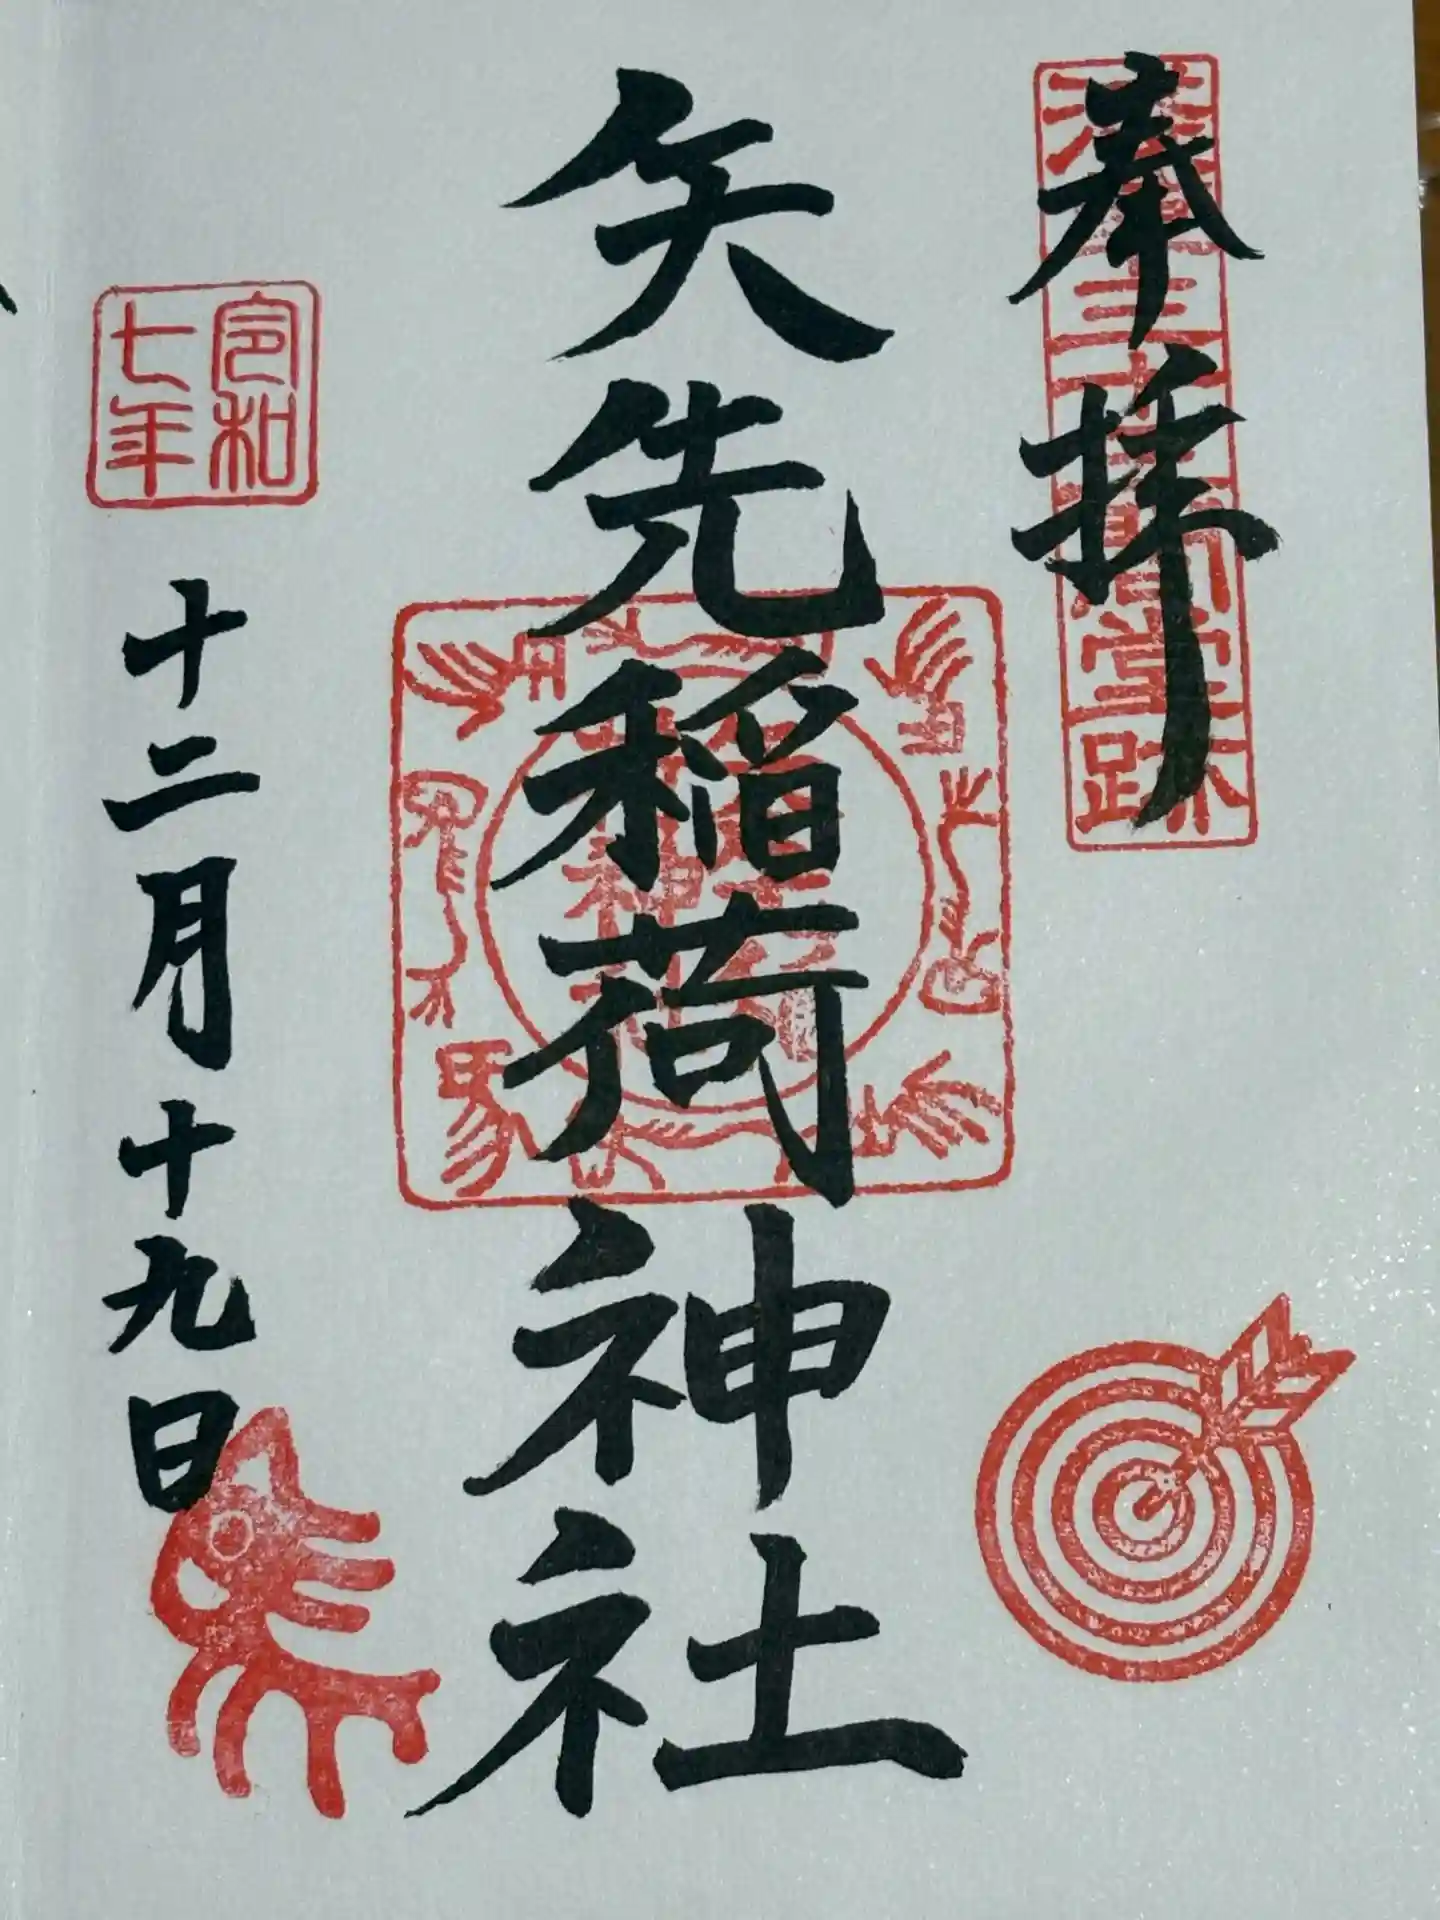 奉拝
浅草三十三間堂跡
矢先稲荷神社
令和七年
十二月十九日